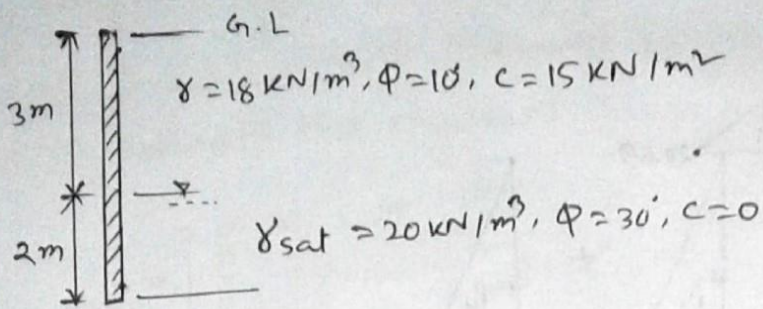 G.L
γ = 18 KN/m³, φ = 10°, c = 15 KN/m²
3m
2m
γsat = 20 KN/m³, φ = 30°, c = 0